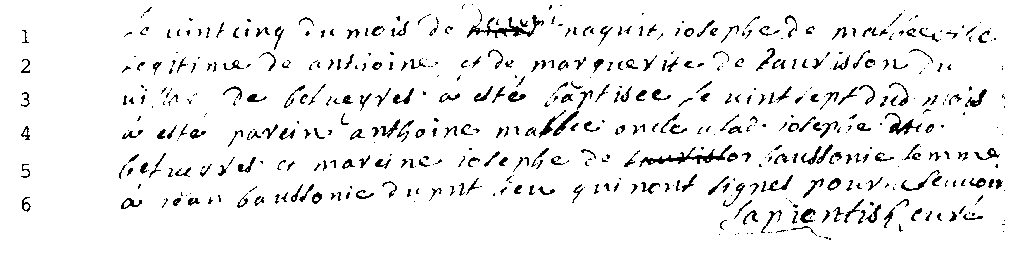 1 Le uint cinq du mois de mars d'auril naquit iosephe de mathée file
2 legitime de anthoine et de marguerite de baurisson du
3 uilla de besueyres a esté baptisee le uint sept dud mois
4 à esté parein anthoine mathée oncle a lad iosephe
5 besueyres et mareine iosephe de baurisson baussonie femme
6 à iean baussonie du pnt lieu qui nont signes pour ne sçauoir
Sapientis curé